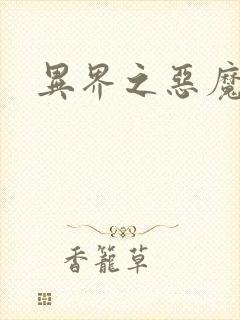 異界之惡魔
香籠草